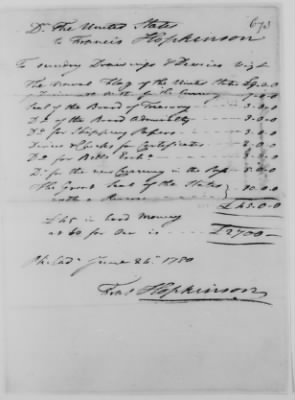 673
Dr. The United States
to Francis Hopkinson
To sundry Drawings & Devices viz
The Naval Flag of the United States £9.0.0
Seal of the Board of Treasury 3.0.0
Do. of the Board Admiralty 3.0.0
Do. for Shipping Papers 3.0.0
Checks for Certificates
Do. for Bills Exch.
Do. for the new Currency in the 5.0.0
The Great Seal of the States
with a Reverse } 10.0.0
£45.0.0
£45 in hard Money
at 60 for One is £2700
Philad. June 24th 1780
Fras. Hopkinson